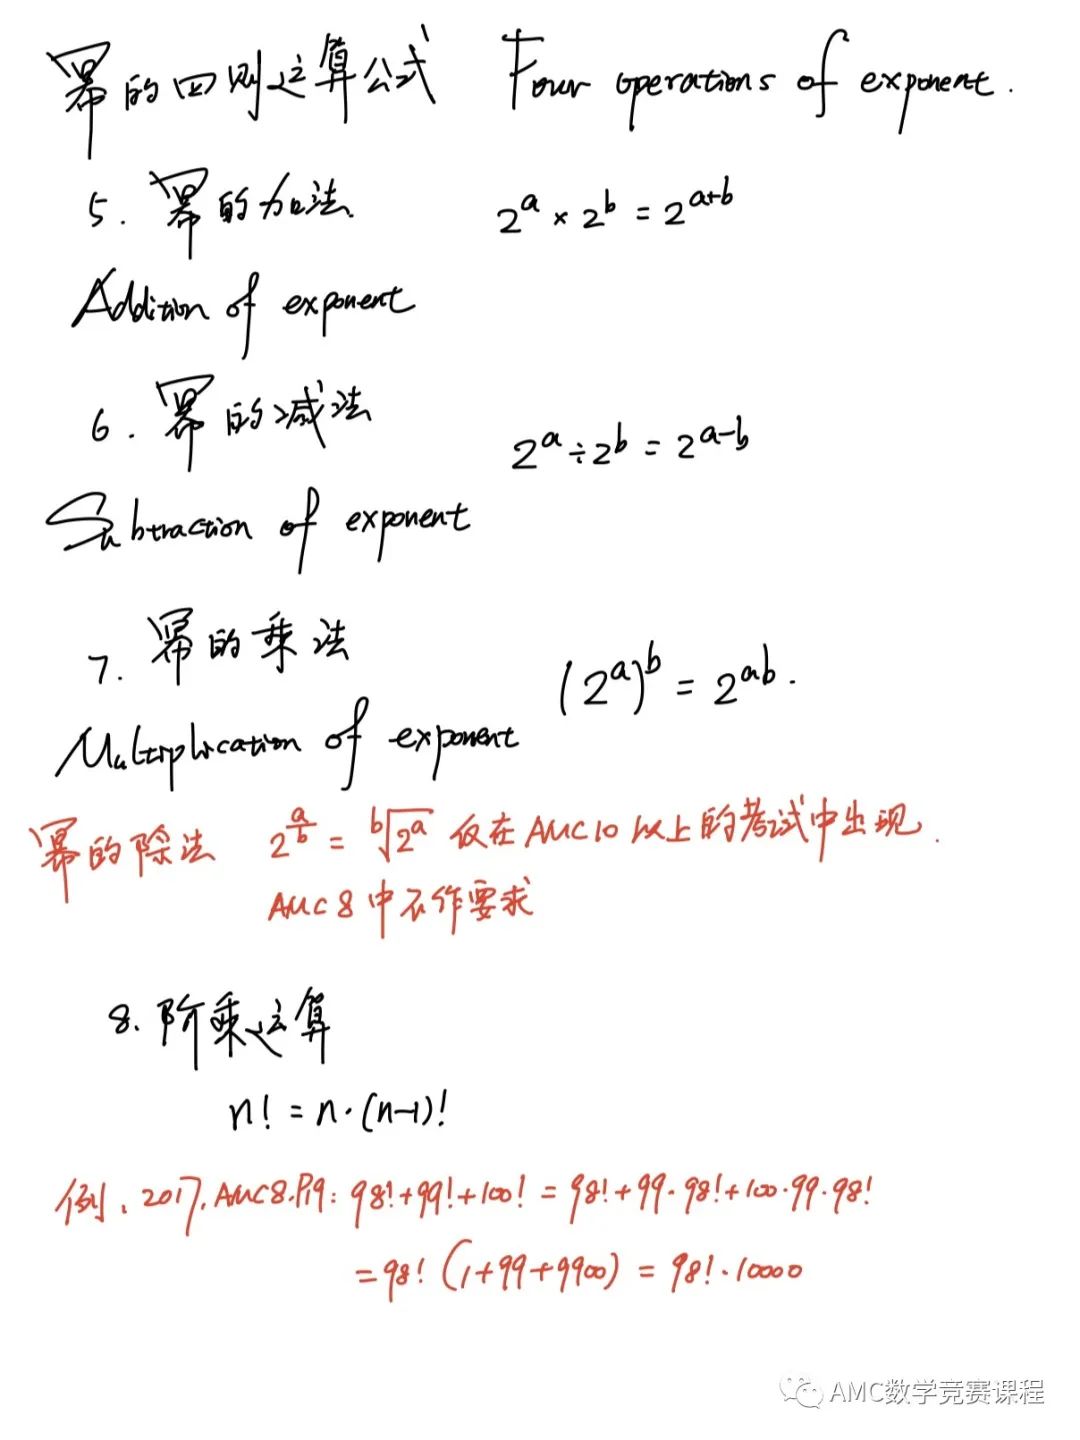 幂的四则运算公式 Four operations of exponent.
5. 幂的加法. 2^a × 2^b = 2^{a+b}
Addition of exponent
6. 幂的减法 2^a ÷ 2^b = 2^{a-b}
Subtraction of exponent
7. 幂的乘法 (2^a)^b = 2^{ab}.
Multiplication of exponent
幂的除法 2^{a/b} = \sqrt[b]{2^a} 仅在AMC10以上的考试中出现.
AMC8中不作要求
8. 阶乘运算
n! = n·(n-1)!
例、2017.AMC8.P19: 98!+99!+100! = 98!+99·98!+100·99·98!
=98! (1+99+9900) = 98!·10000
AMC数学竞赛课程